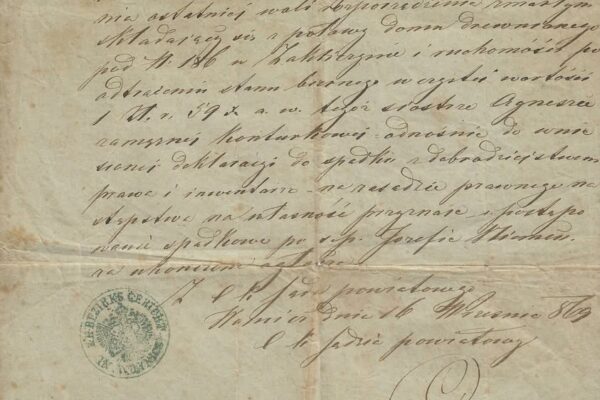 nia ostatniej woli rozporządzenia zmarłym
składający się z połowy domu drewnianego
pod N. 186 w Zakliczynie i ruchomości po
odtrąceniu stanu biernego w czystej wartości
1 zł. r. 59 x a. w. tegoż siostrze Agnieszce
zamężnej Konturkowej odnośnie do wnie
sionej deklaracyi do spadku z dobrodziejstwem
prawa i inwentarza na zasadzie prawnego na
stępstwa na własność przyznaje i postępo
wanie spadkowe po ś.p. Józefie
za ukończone
Z C k Sądu powiatowego
dnia 16 Września 869
C k Sędzia powiatowy
K.K. BEZIRKS GERICHT